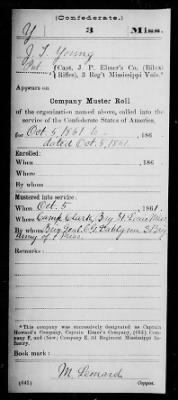 (Confederate.)
Y 3 Miss.
J. T. Young
Pvt. (Capt. J. P. Elmer's Co. (Biloxi
Rifles), 3 Reg't Mississippi Vols.*
Appears on
Company Muster Roll
of the organization named above, called into the
service of the Confederate States of America,
for Oct 5, 1861 to , 186
dated Oct. 5, 1861.
Enrolled:
When , 186
Where
By whom
Mustered into service:
When Oct. 5 , 1861.
Where Camp Clark, Bay St. Louis Miss
By whom
Army of Miss.
Remarks:
*This company was successively designated as Captain
Howard's Company, Captain Elmer's Company,
Company F, and (New) Company E, 3d Regiment Mississippi Infantry.
Book mark:
M. Lenard
(642) Copyist.